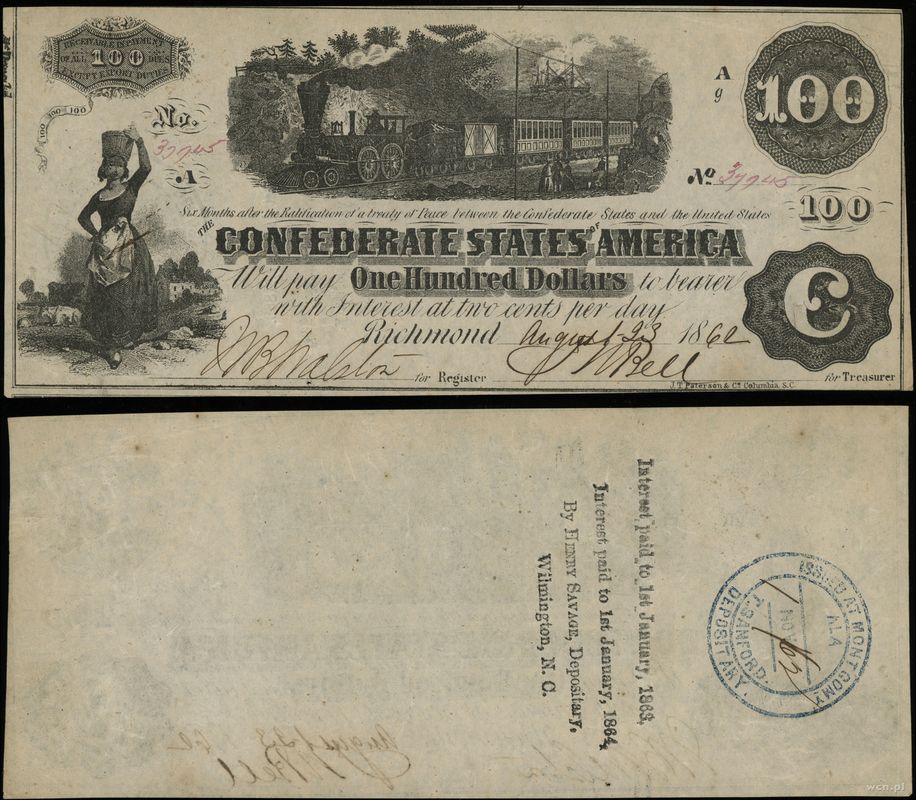 RECEIVABLE IN PAYMENT
OF ALL 100 DUES
EXCEPT EXPORT DUTIES
100 100 100
No.
37945
A
A
9
100
No 37945
100
Six Months after the Ratification of a treaty of Peace between the Confederate States and the United States
THE CONFEDERATE STATES OF AMERICA
Will pay One Hundred Dollars to bearer
with Interest at two cents per day
Richmond August 23 1862
C
for Register
for Treasurer
J.T. Paterson & Co. Columbia, S.C.
Interest paid to 1st January, 1863.
Interest paid to 1st January, 1864,
By HENRY SAVAGE, Depositary,
Wilmington, N. C.
ISSUED AT MONTGOMY
ALA
NOV
SANFORD.
DEPOSITARY.
wcn.pl